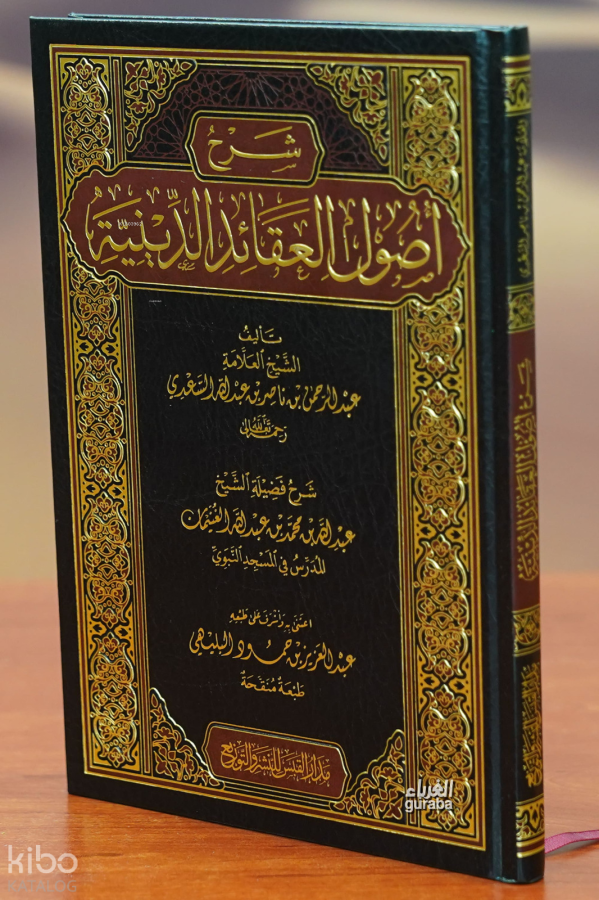 شرح
أصول العقائد الدينية
تأليف
الشيخ العلامة
عبد الرحمن بن ناصر بن عبد الله السعدي
رحمه الله تعالى
شرح فضيلة الشيخ
عبد الله بن محمد بن عبد الله الغنيمان
المدرس في المسجد النبوي
اعتنى به وأشرف على طبعه
عبد العزيز بن حمود البليهي
طبعة منقحة
مدار القبس للنشر والتوزيع
شرح أصول العقائد الدينية
الغرباء
guraba
kibo
KATALOG